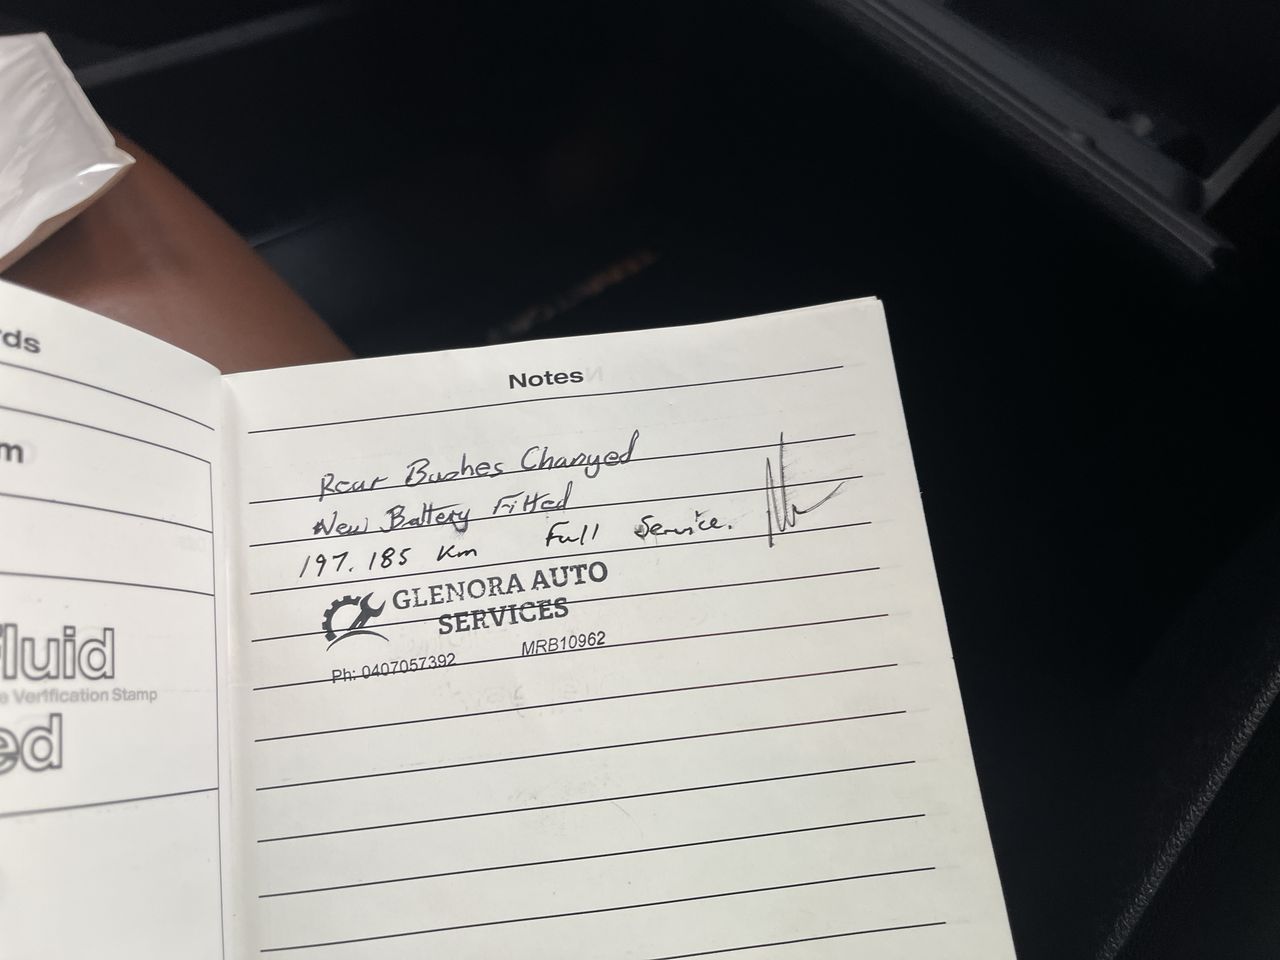 rds
m
fluid
e Verification Stamp
ed
Notes
Rear Bushes Changed
New Battery Fitted
197.185 Km Full Service.
GLENORA AUTO
SERVICES
Ph: 0407057392 MRB10962